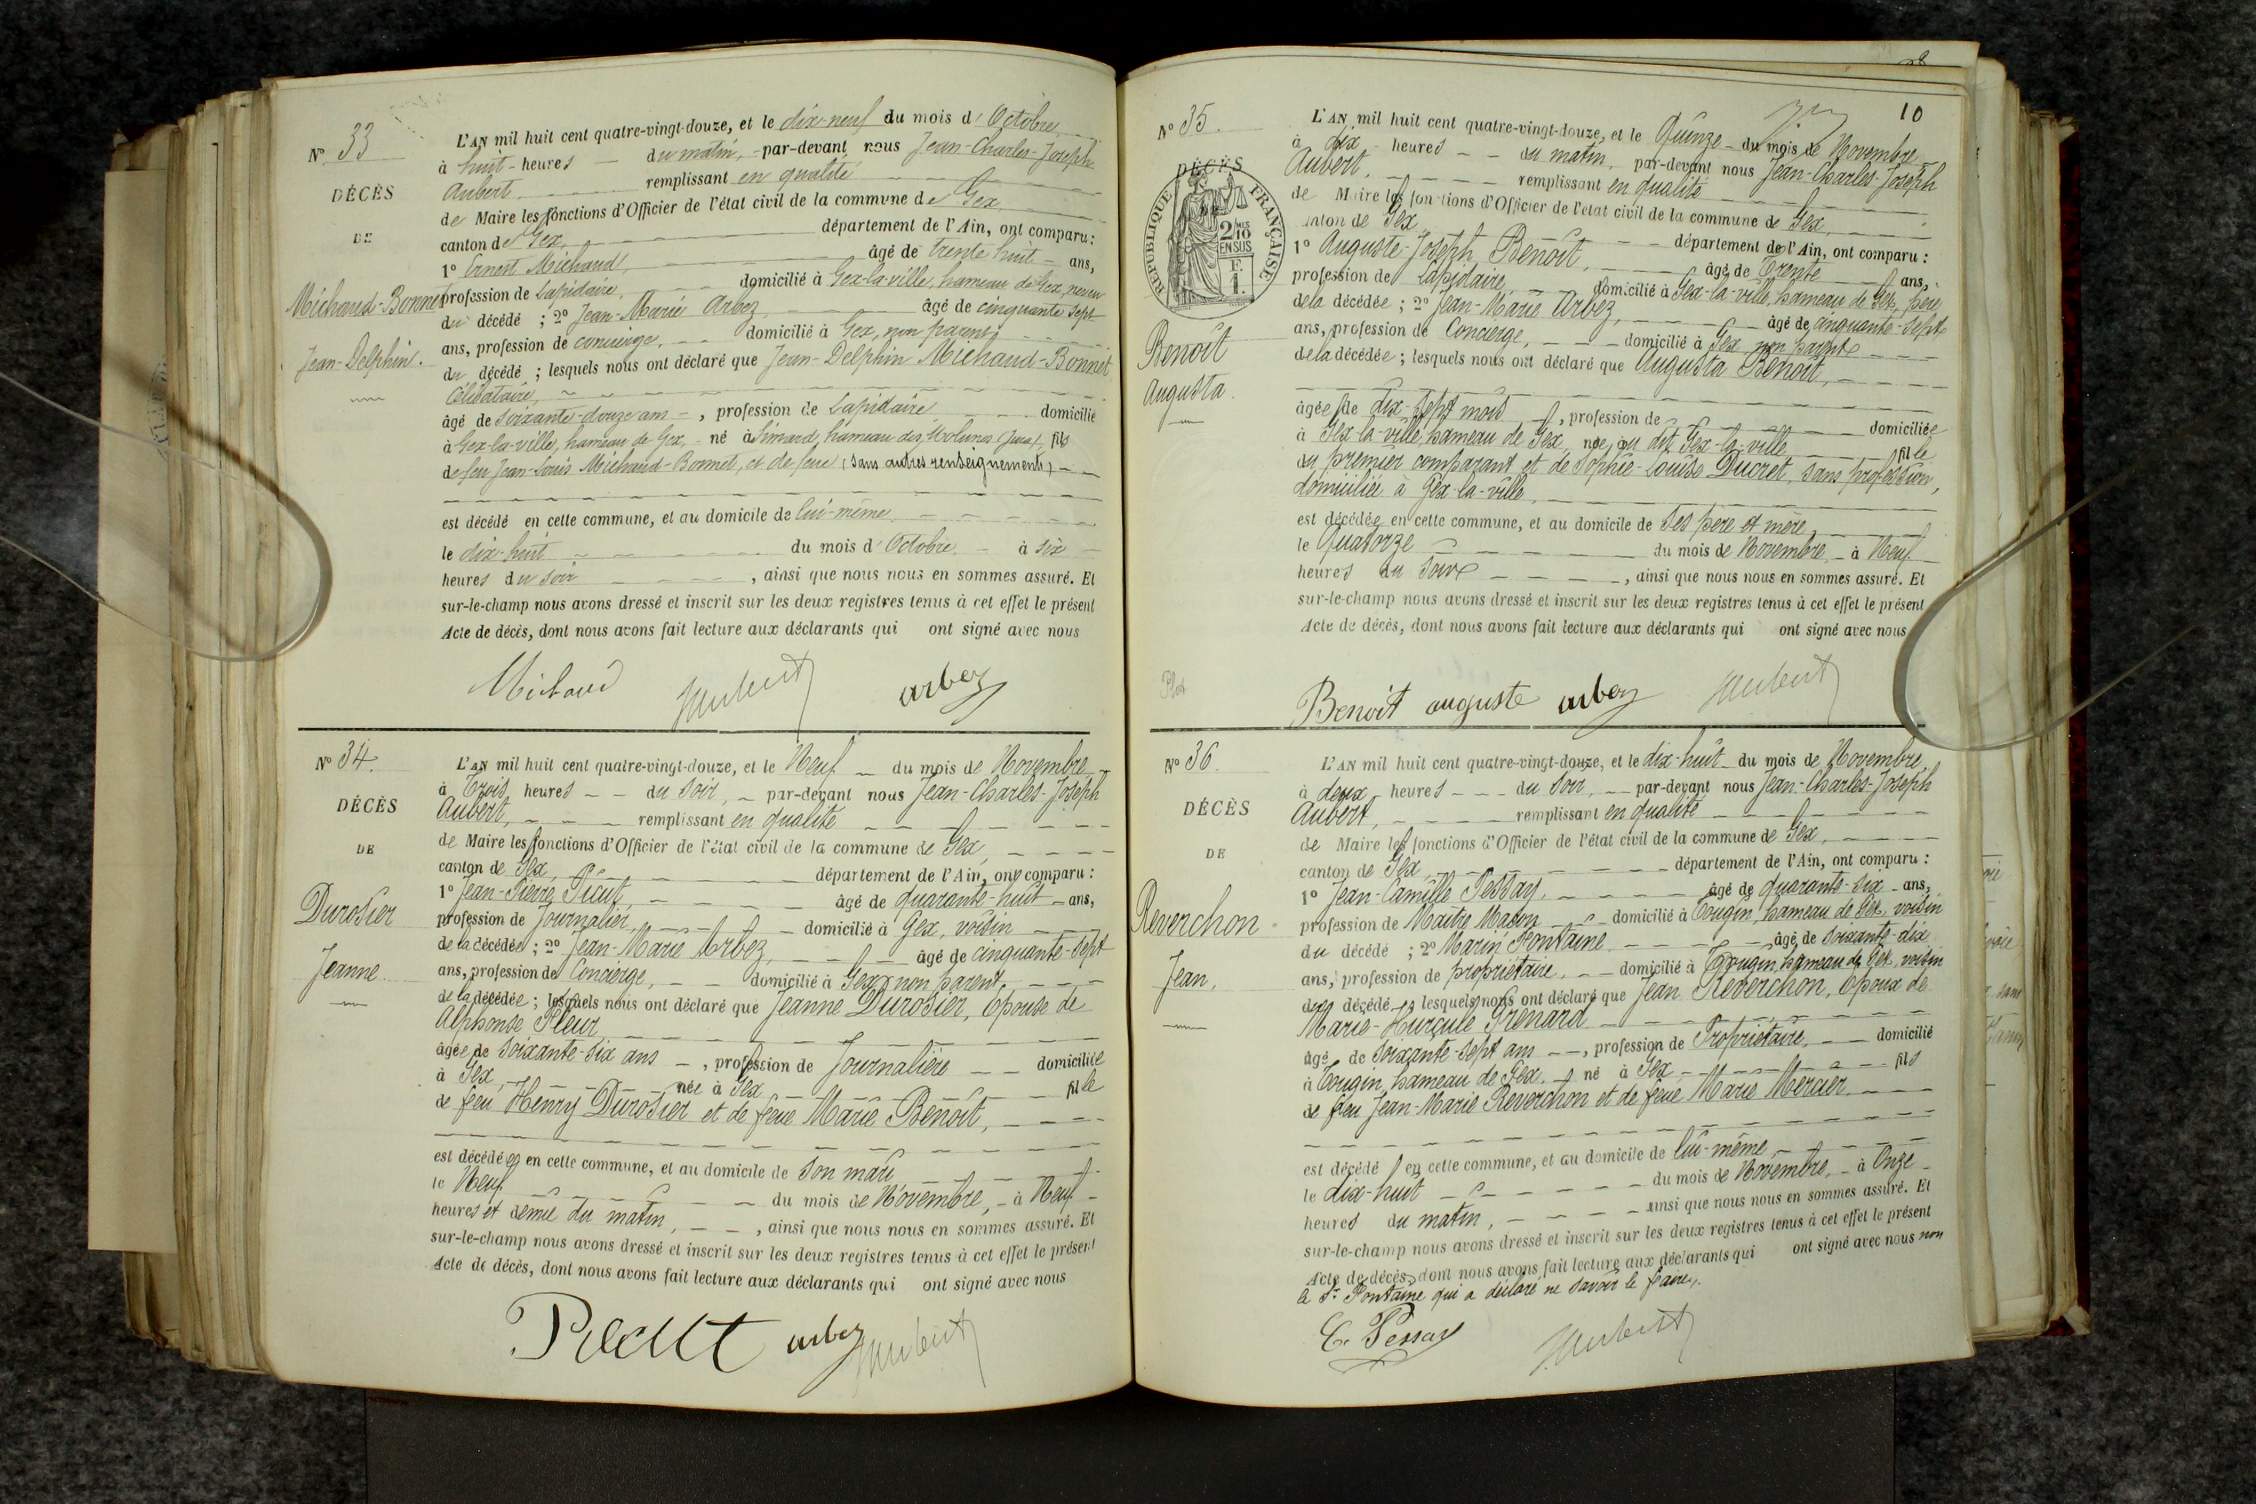 N° 33
DÉCÈS
DE
Michaud-Bonnet
Jean-Delphin.
L'AN mil huit cent quatre-vingt-douze, et le dix-neuf du mois d'Octobre
à huit heures du matin, par-devant nous Jean-Charles-Joseph
Aubert remplissant en qualité
de Maire les fonctions d'Officier de l'état civil de la commune de Gex
canton de Gex, département de l'Ain, ont comparu :
1° Ernest Michaud, âgé de trente huit ans,
profession de Lapidaire, domicilié à Gex-la-ville, hameau de Gex, neveu
du décédé ; 2° Jean-Marie Arbez, âgé de cinquante sept
ans, profession de concierge, domicilié à Gex, non parent
du décédé ; lesquels nous ont déclaré que Jean-Delphin Michaud-Bonnet,
Célibataire,
âgé de soixante-douze ans, profession de Lapidaire domicilié
à Gex-la-ville, hameau de Gex, né à Simard, hameau des Molunes (Jura), fils
de feu Jean-Louis Michaud-Bonnet, et de feue (sans autres renseignements)
est décédé en cette commune, et au domicile de lui-même
le dix-huit du mois d'Octobre à six
heures du soir, ainsi que nous nous en sommes assuré. Et
sur-le-champ nous avons dressé et inscrit sur les deux registres tenus à cet effet le présent
Acte de décès, dont nous avons fait lecture aux déclarants qui ont signé avec nous
Michaud Aubert arbez
N° 34.
DÉCÈS
DE
Durosier
Jeanne
L'AN mil huit cent quatre-vingt-douze, et le Neuf du mois de Novembre
à Trois heures du Soir, par-devant nous Jean-Charles-Joseph
Aubert, remplissant en qualité
de Maire les fonctions d'Officier de l'état civil de la commune de Gex,
canton de Gex, département de l'Ain, ont comparu :
1° Jean-Pierre Picut, âgé de quarante-huit ans,
profession de Journalier, domicilié à Gex, voisin
de la décédée ; 2° Jean-Marie Arbez, âgé de cinquante-sept
ans, profession de Concierge, domicilié à Gex non parent
de la décédée ; lesquels nous ont déclaré que Jeanne Durosier, Épouse de
Alphonse Fleur
âgée de soixante-six ans, profession de Journalière domiciliée
à Gex, née à Gex fille
de feu Henry Durosier et de feue Marie Benoît,
est décédée en cette commune, et au domicile de son mari
le Neuf du mois de Novembre, à Neuf
heures et demie du matin, ainsi que nous nous en sommes assuré. Et
sur-le-champ nous avons dressé et inscrit sur les deux registres tenus à cet effet le présent
Acte de décès, dont nous avons fait lecture aux déclarants qui ont signé avec nous
Picut arbez Aubert
10
N° 35.
DÉCÈS
RÉPUBLIQUE FRANÇAISE
2/10 MES
EN SUS
F.
1.
Benoît
Augusta.
L'AN mil huit cent quatre-vingt-douze, et le Quinze du mois de Novembre
à dix heures du matin, par-devant nous Jean-Charles-Joseph
Aubert, remplissant en qualité
de Maire les fonctions d'Officier de l'état civil de la commune de Gex,
canton de Gex département de l'Ain, ont comparu :
1° Auguste-Joseph Benoît, âgé de Trente ans,
profession de Lapidaire, domicilié à Gex-la-ville, hameau de Gex, père
de la décédée ; 2° Jean-Marie Arbez, âgé de cinquante-sept
ans, profession de Concierge, domicilié à Gex non parent
de la décédée ; lesquels nous ont déclaré que Augusta Benoit,
âgée de dix-sept mois, profession de domiciliée
à Gex-la-ville, hameau de Gex, née au dit Gex-la-ville fille
du premier comparant et de Sophie-Louise Ducret, sans profession,
domiciliée à Gex-la-ville,
est décédée en cette commune, et au domicile de ses père et mère,
le Quatorze du mois de Novembre à Neuf
heures du soir, ainsi que nous nous en sommes assuré. Et
sur-le-champ nous avons dressé et inscrit sur les deux registres tenus à cet effet le présent
Acte de décès, dont nous avons fait lecture aux déclarants qui ont signé avec nous
Benoit auguste arbez Aubert
N° 36.
DÉCÈS
DE
Reverchon
Jean,
L'AN mil huit cent quatre-vingt-douze, et le dix-huit du mois de Novembre,
à deux heures du Soir, par-devant nous Jean-Charles-Joseph
Aubert, remplissant en qualité
de Maire les fonctions d'Officier de l'état civil de la commune de Gex,
canton de Gex, département de l'Ain, ont comparu :
1° Jean-Camille Pessay, âgé de quarante-six ans,
profession de Maître Maçon domicilié à Tougin, hameau de Gex, voisin
du décédé ; 2° Marin Fontaine âgé de soixante-dix
ans, profession de propriétaire, domicilié à Tougin, hameau de Gex, voisin
du décédé lesquels nous ont déclaré que Jean Reverchon, Époux de
Marie-Hurcule Grenard
âgé de soixante-sept ans, profession de Propriétaire, domicilié
à Tougin, hameau de Gex, né à Gex, fils
de feu Jean-Marie Reverchon et de feue Marie Mercier
est décédé en cette commune, et au domicile de lui-même,
le dix-huit du mois de Novembre, à Onze
heures du matin, ainsi que nous nous en sommes assuré. Et
sur-le-champ nous avons dressé et inscrit sur les deux registres tenus à cet effet le présent
Acte de décès, dont nous avons fait lecture aux déclarants qui ont signé avec nous non
le Sr Fontaine qui a déclaré ne savoir le faire,.
C. Pessay Aubert